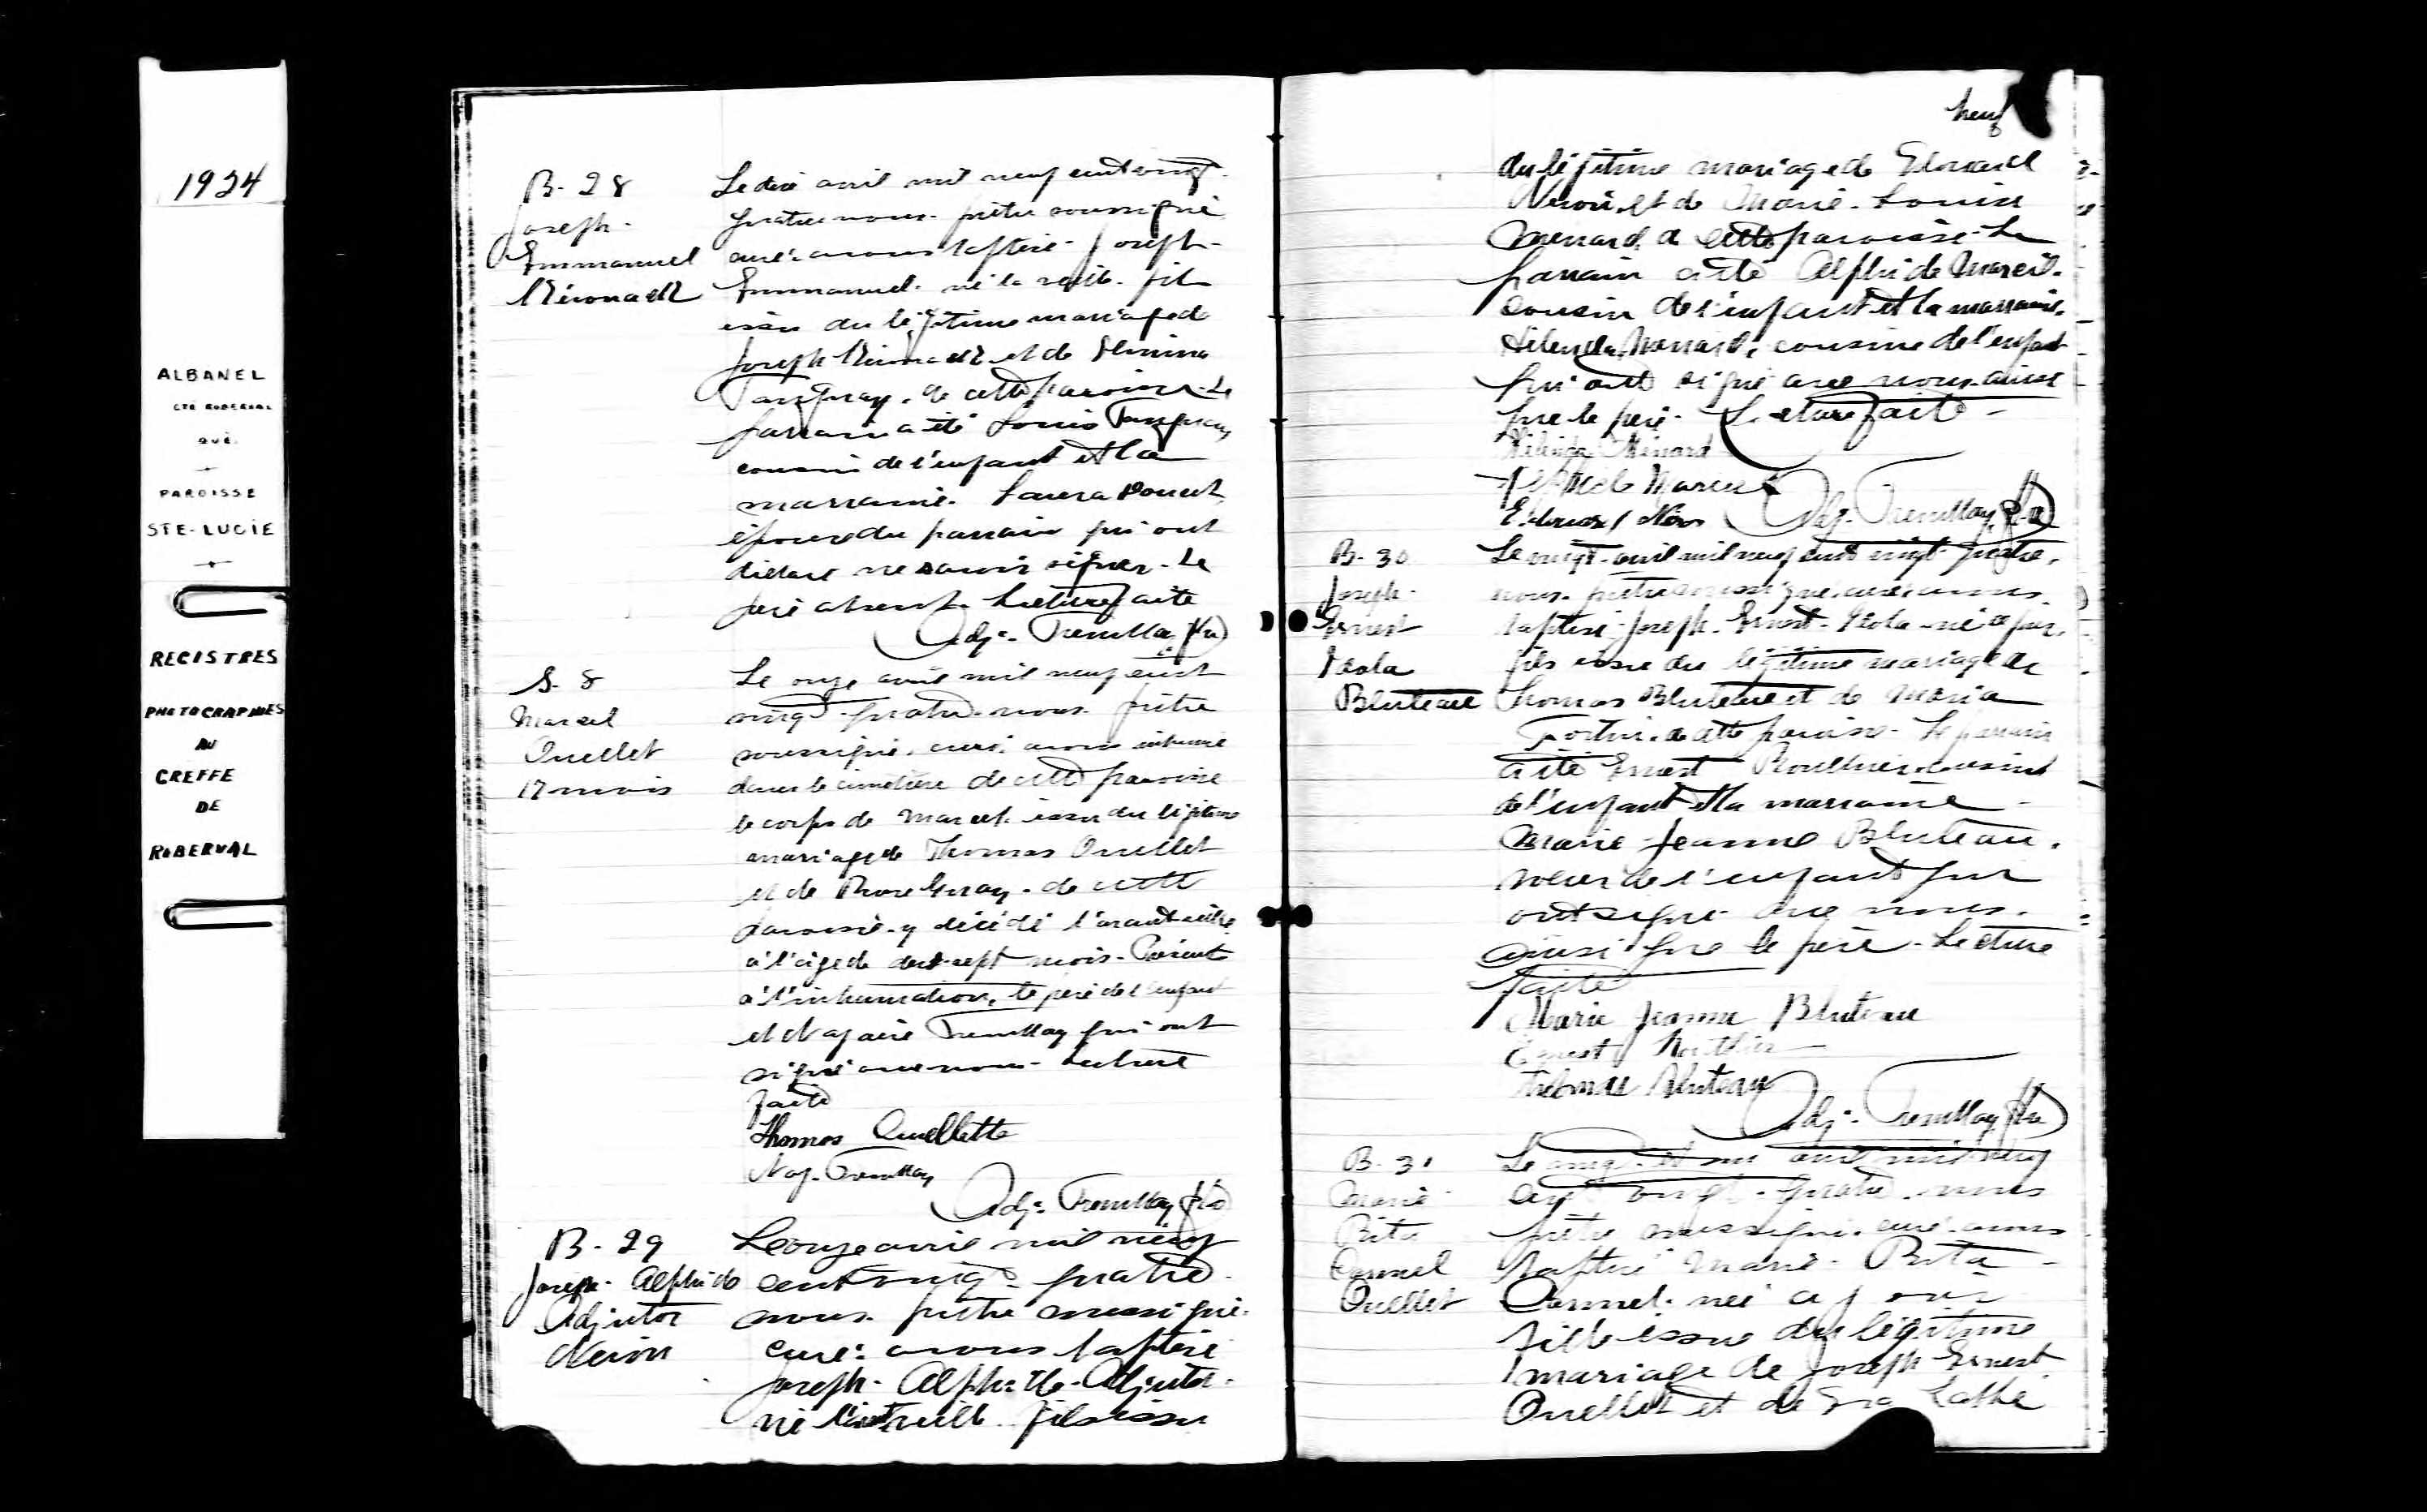 1924
ALBANEL
CTÉ ROBERVAL
QUÉ.
PAROISSE
STE-LUCIE
REGISTRES
PHOTOGRAPHIES
AU
GREFFE
DE
ROBERVAL
B-28
Joseph-
Emmanuel
Le dix avril mil neuf cent vingt-
quatre nous prêtre soussigné
curé avons baptisé Joseph-
Emmanuel né la veille fils
issu du légitime mariage de
Joseph et de
Tanguay de cette paroisse. Le
parrain a été Louis Tanguay
cousin de l'enfant et la
marraine Laura Doucet
épouse du parrain qui ont
déclaré ne savoir signer. Le
père absent. Lecture faite
Adj. Tremblay ptre
S. 8
Marcel
Ouellet
17 mois
Le onze avril mil neuf cent
vingt-quatre nous prêtre
soussigné, curé, avons inhumé
dans le cimetière de cette paroisse
le corps de Marcel issu du légitime
mariage de Thomas Ouellet
et de Rose de cette
paroisse y décédé l'avant-veille
à l'âge de dix-sept mois. Présents
à l'inhumation, le père de l'enfant
et Nazaire Tremblay qui ont
signé avec nous. Lecture
faite
Thomas Ouellette
Naz. Tremblay
Adj. Tremblay ptre
B-29
Joseph-Alphide
Adjutor
Néron
Le onze avril mil neuf
cent vingt-quatre
nous prêtre soussigné
curé avons baptisé
Joseph-Alphide-Adjutor
né l'avant-veille fils issu
neuf
du légitime mariage de Edouard
Néron et de Marie-Louise
Menard de cette paroisse. Le
parrain a été Alphide Mareil
cousin de l'enfant et la marraine
Menard, cousine de l'enfant
qui ont signé avec nous ainsi
que le père. Lecture faite
Ménard
Alphide
Edouard Néron Adj. Tremblay ptre
B-30
Joseph-
Ernest
Bluteau
Le vingt avril mil neuf cent vingt-quatre,
nous prêtre soussigné, curé avons
baptisé Joseph-Ernest- né ce jour,
fils issu du légitime mariage de
Thomas Bluteau et de Maria
Fortin de cette paroisse. Le parrain
a été Ernest cousin
de l'enfant et la marraine
Marie-Jeanne Bluteau,
soeur de l'enfant qui
ont signé avec nous
ainsi que le père. Lecture
faite
Marie Jeanne Bluteau
Ernest
Thomas Bluteau
Adj. Tremblay ptre
B-31
Marie-
Rita
Carmel
Ouellet
Le vingt et un avril mil neuf
cent vingt-quatre nous
prêtre soussigné curé avons
baptisé Marie-Rita-
Carmel née ce jour
fille issue du légitime
mariage de Joseph-Ernest
Ouellet et de